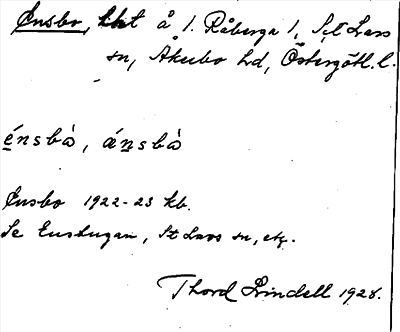 Ensbo, lht å 1. Råberga 1, S:t Lars
sn, Åkerbo hd, Östergötl. l.
énsbò, ánsbò
Ensbo 1922-23 kb.
Se Enstugan, St Lars sn, etc.
Thord Lindell 1928.